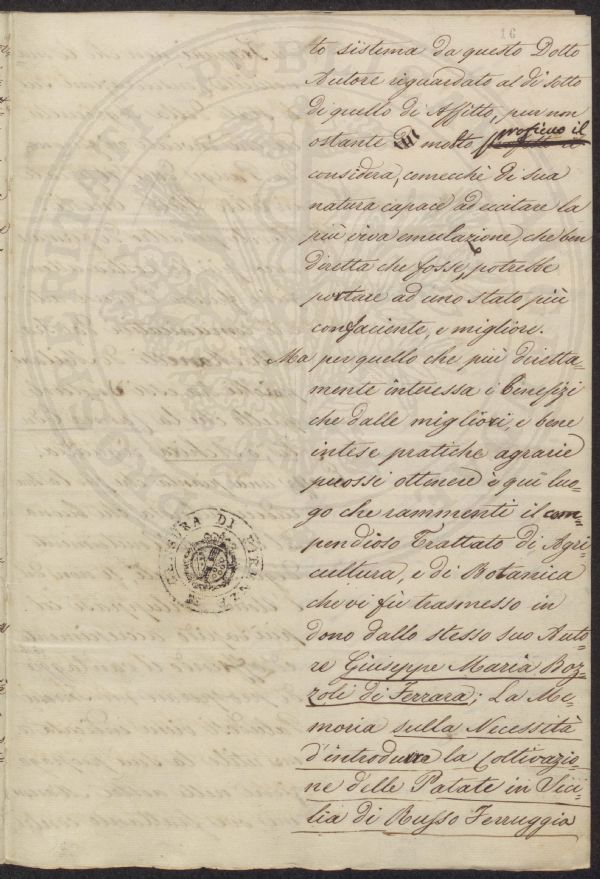 16
to sistema da questo Dotto
Autore riguardato al di sotto
di quello di Affitto, pur non
ostante molto proficuo il
considera, comecchè di sua
natura capace ad eccitare la
più viva emulazione, che ben
diretta che fosse, potrebbe
portare ad uno stato più
confaciente, e migliore.
Ma per quello che più diretta=
mente interessa i benefizi
che dalle migliori, e bene
intese pratiche agrarie
puossi ottenere è quì luo=
go che rammenti il com=
pendioso Trattato di Agri
cultura, e di Botanica
che vi fù trasmesso in
dono dallo stesso suo Auto=
re Giuseppe Maria Boz=
zoli di Ferrara; La Me=
moria sulla Necessità
d'introdurre la Coltivazio=
ne delle Patate in Sici=
lia di Russo Ferruggia